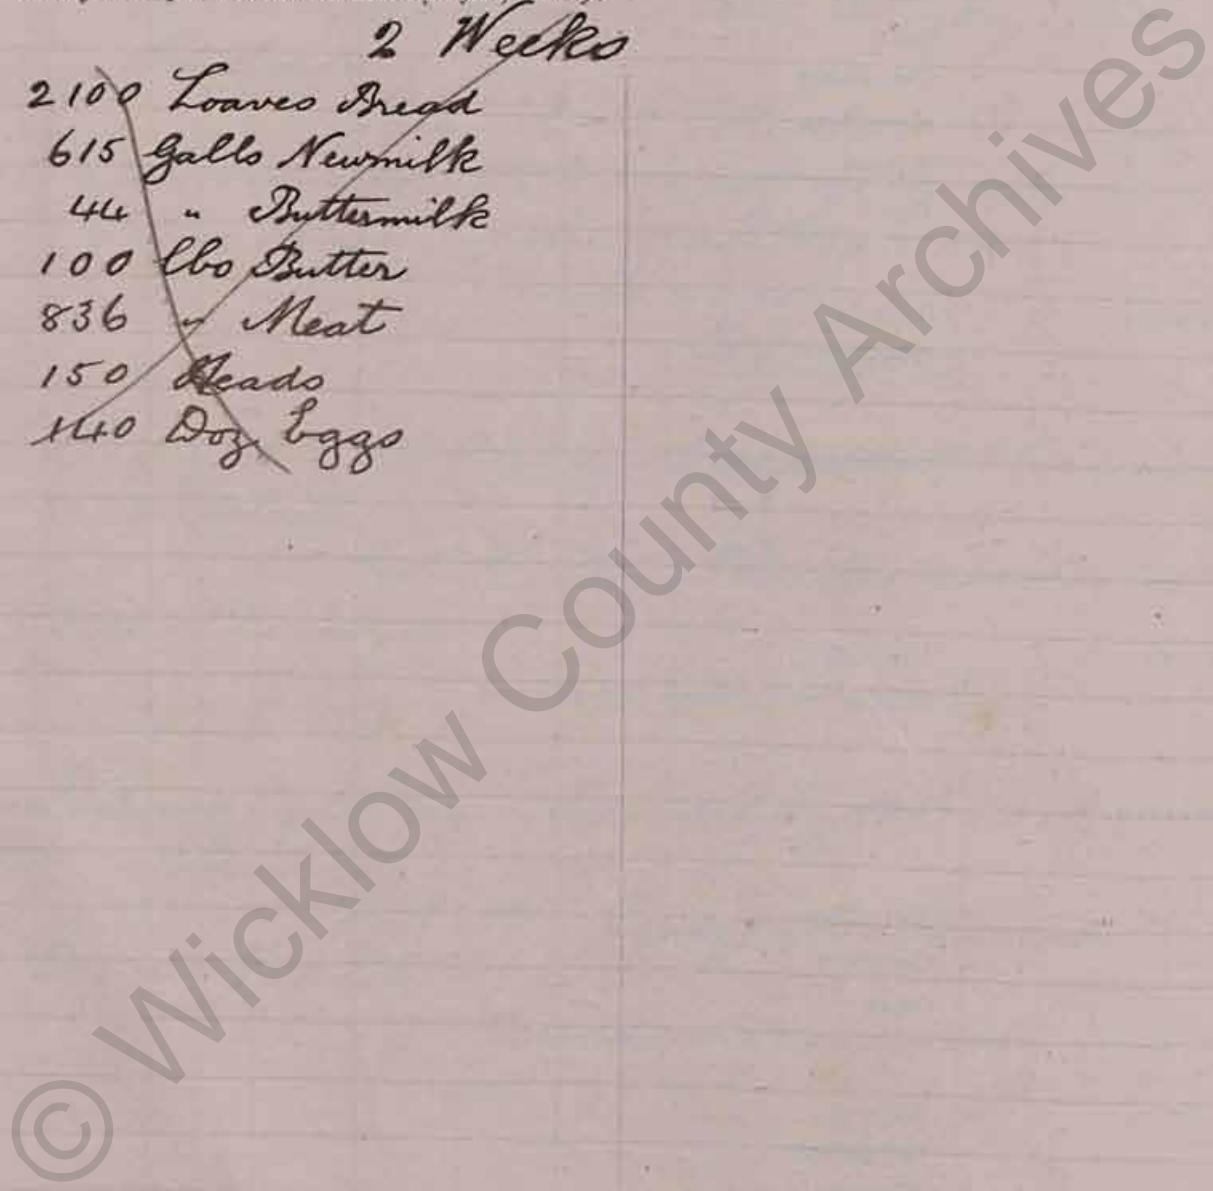 2 Weeks
2100 Loaves Bread
615 Galls Newmilk
44 " Buttermilk
100 lbs Butter
836 " Meat
150 Heads
140 Doz Eggs
© Wicklow County Archives